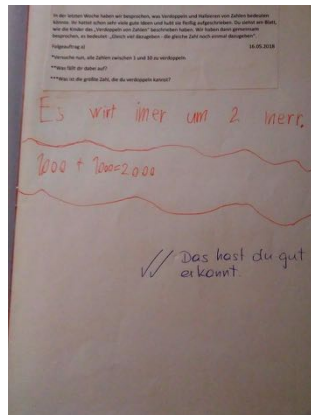 In der letzten Woche haben wir besprochen, was Verdoppeln und Halbieren von Zahlen bedeuten
können. Ihr hattet schon sehr viele gute Ideen und habt sie fleißig aufgeschrieben. Du siehst ein Blatt,
wie die Kinder das „Verdoppeln von Zahlen“ beschrieben haben. Wir haben dann gemeinsam
besprochen, es bedeutet: „Gleich viel dazugeben - die gleiche Zahl noch einmal dazugeben“.
Folgeauftrag a) 16.05.2018
*Versuche nun, alle Zahlen zwischen 1 und 10 zu verdoppeln.
**Was fällt dir dabei auf?
***Was ist die größte Zahl, die du verdoppeln kannst?
Es wirt imer um 2 merr.
1000 + 1000=2000
Das hast du gut
erkannt.